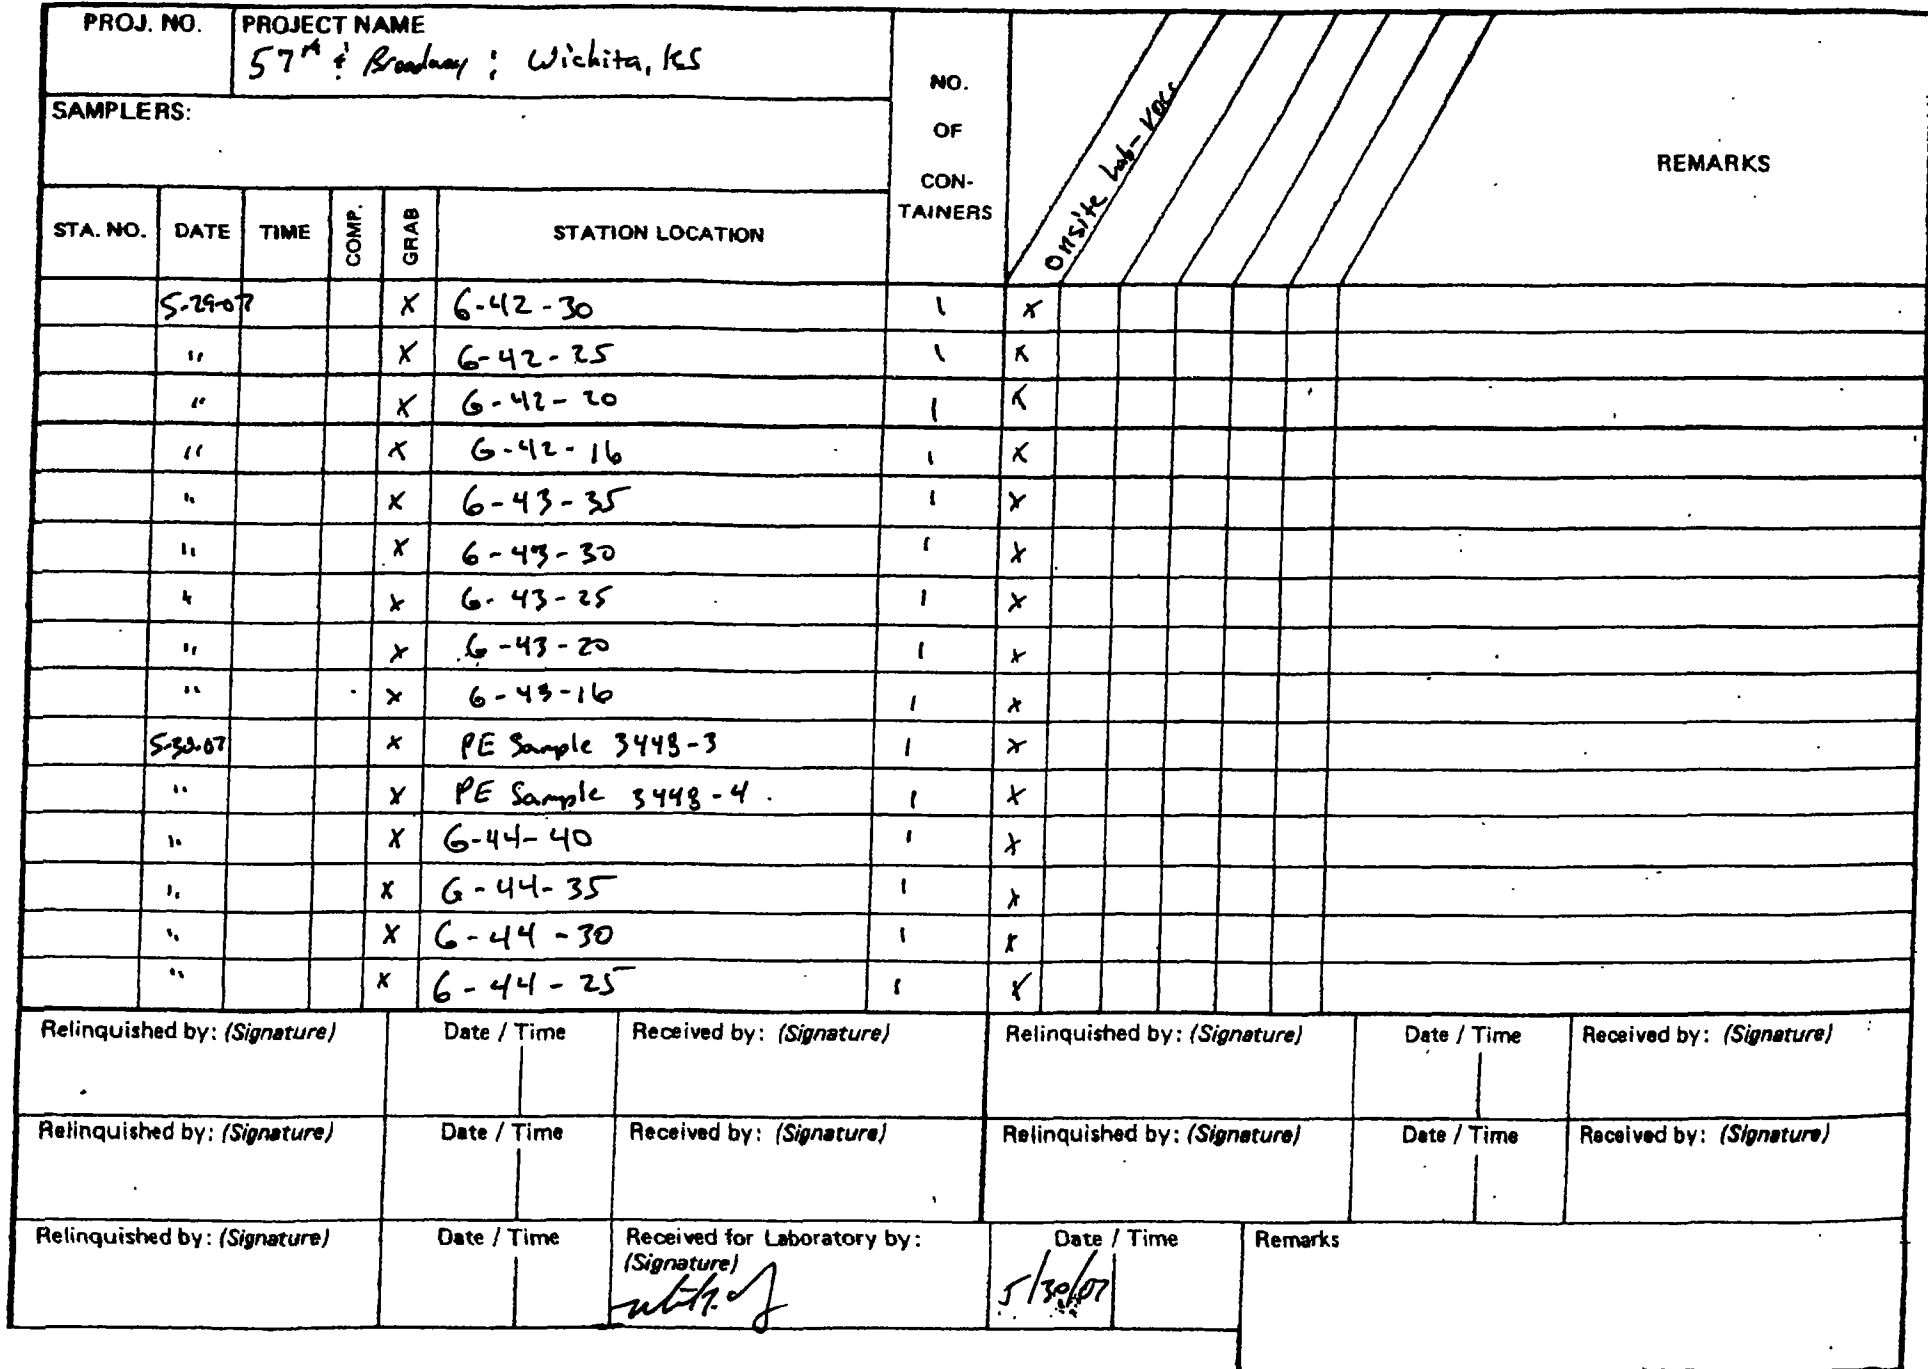 PROJ. NO. PROJECT NAME
57th & Broadway ; Wichita, KS
SAMPLERS:
NO.
OF
CON-
TAINERS
Onsite Lab-VOCs
REMARKS
STA. NO. DATE TIME COMP. GRAB STATION LOCATION
5-29-07 X 6-42-30 1 X
" X 6-42-25 1 X
" X 6-42-20 1 X
" X 6-42-16 1 X
" X 6-43-35 1 X
" X 6-43-30 1 X
" X 6-43-25 1 X
" X 6-43-20 1 X
" X 6-43-16 1 X
5-30-07 X PE Sample 3448-3 1 X
" X PE Sample 3448-4 1 X
" X 6-44-40 1 X
" X 6-44-35 1 X
" X 6-44-30 1 X
" X 6-44-25 1 X
Relinquished by: (Signature) Date / Time Received by: (Signature) Relinquished by: (Signature) Date / Time Received by: (Signature)
Relinquished by: (Signature) Date / Time Received by: (Signature) Relinquished by: (Signature) Date / Time Received by: (Signature)
Relinquished by: (Signature) Date / Time Received for Laboratory by: Date / Time Remarks
(Signature)
5/30/07